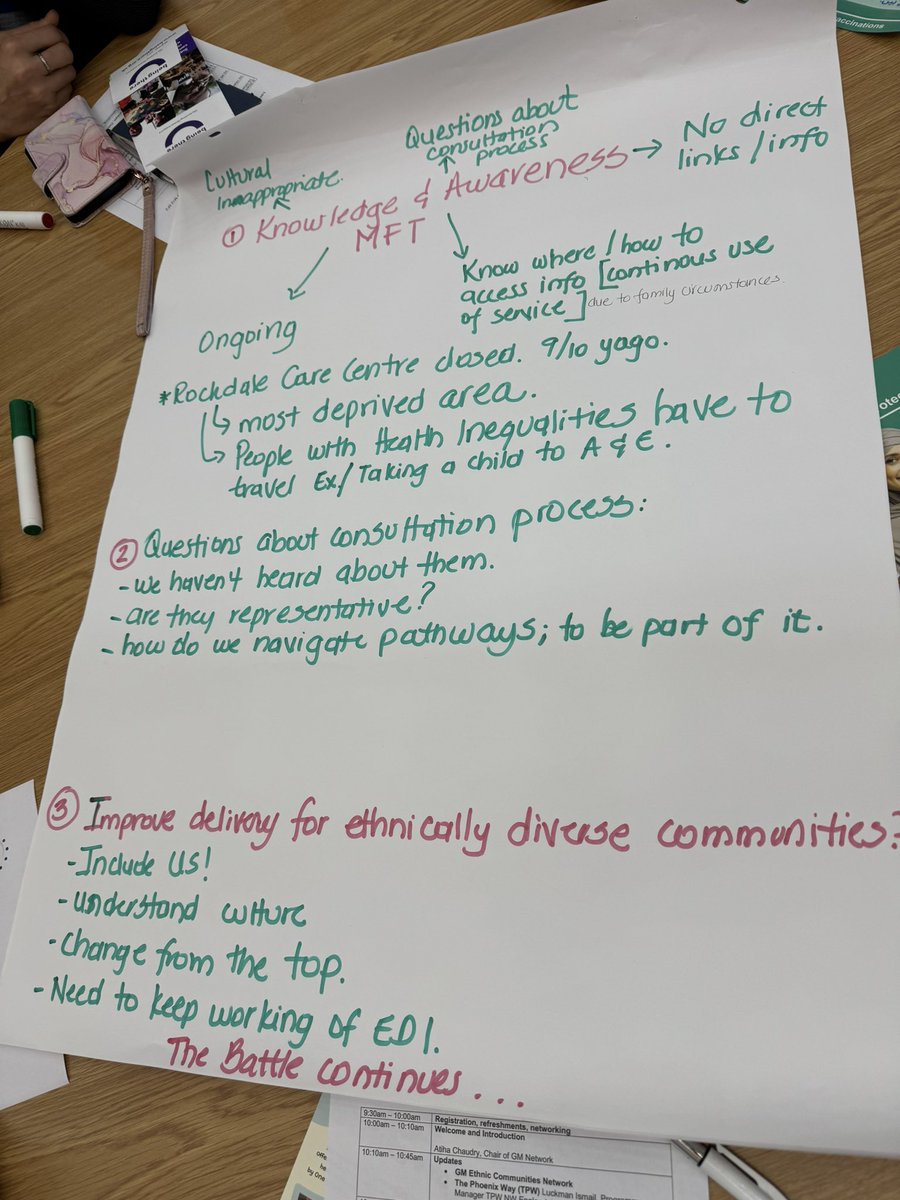 Questions about
consultation
process
Cultural
Inappropriate.
No direct
links / info
① Knowledge & Awareness
MFT
Know where / how to
access info [continous use
of service] due to family circumstances.
Ongoing
*Rockdale Care Centre closed. 9/10 yago.
most deprived area.
People with Health Inequalities have to
travel Ex/ Taking a child to A & E.
② Questions about consultation process:
- we haven't heard about them.
- are they representative?
- how do we navigate pathways; to be part of it.
③ Improve delivery for ethnically diverse communities?
- Include US!
- understand culture
- Change from the top.
- Need to keep working of EDI.
The Battle continues...
9:30am – 10:00am Registration, refreshments, networking
10:00am – 10:10am Welcome and Introduction
Atiha Chaudry, Chair of GM Network
10:10am – 10:45am Updates
• GM Ethnic Communities Network
• The Phoenix Way (TPW) Luckman Ismail,
Manager TPW NW
being there
being there